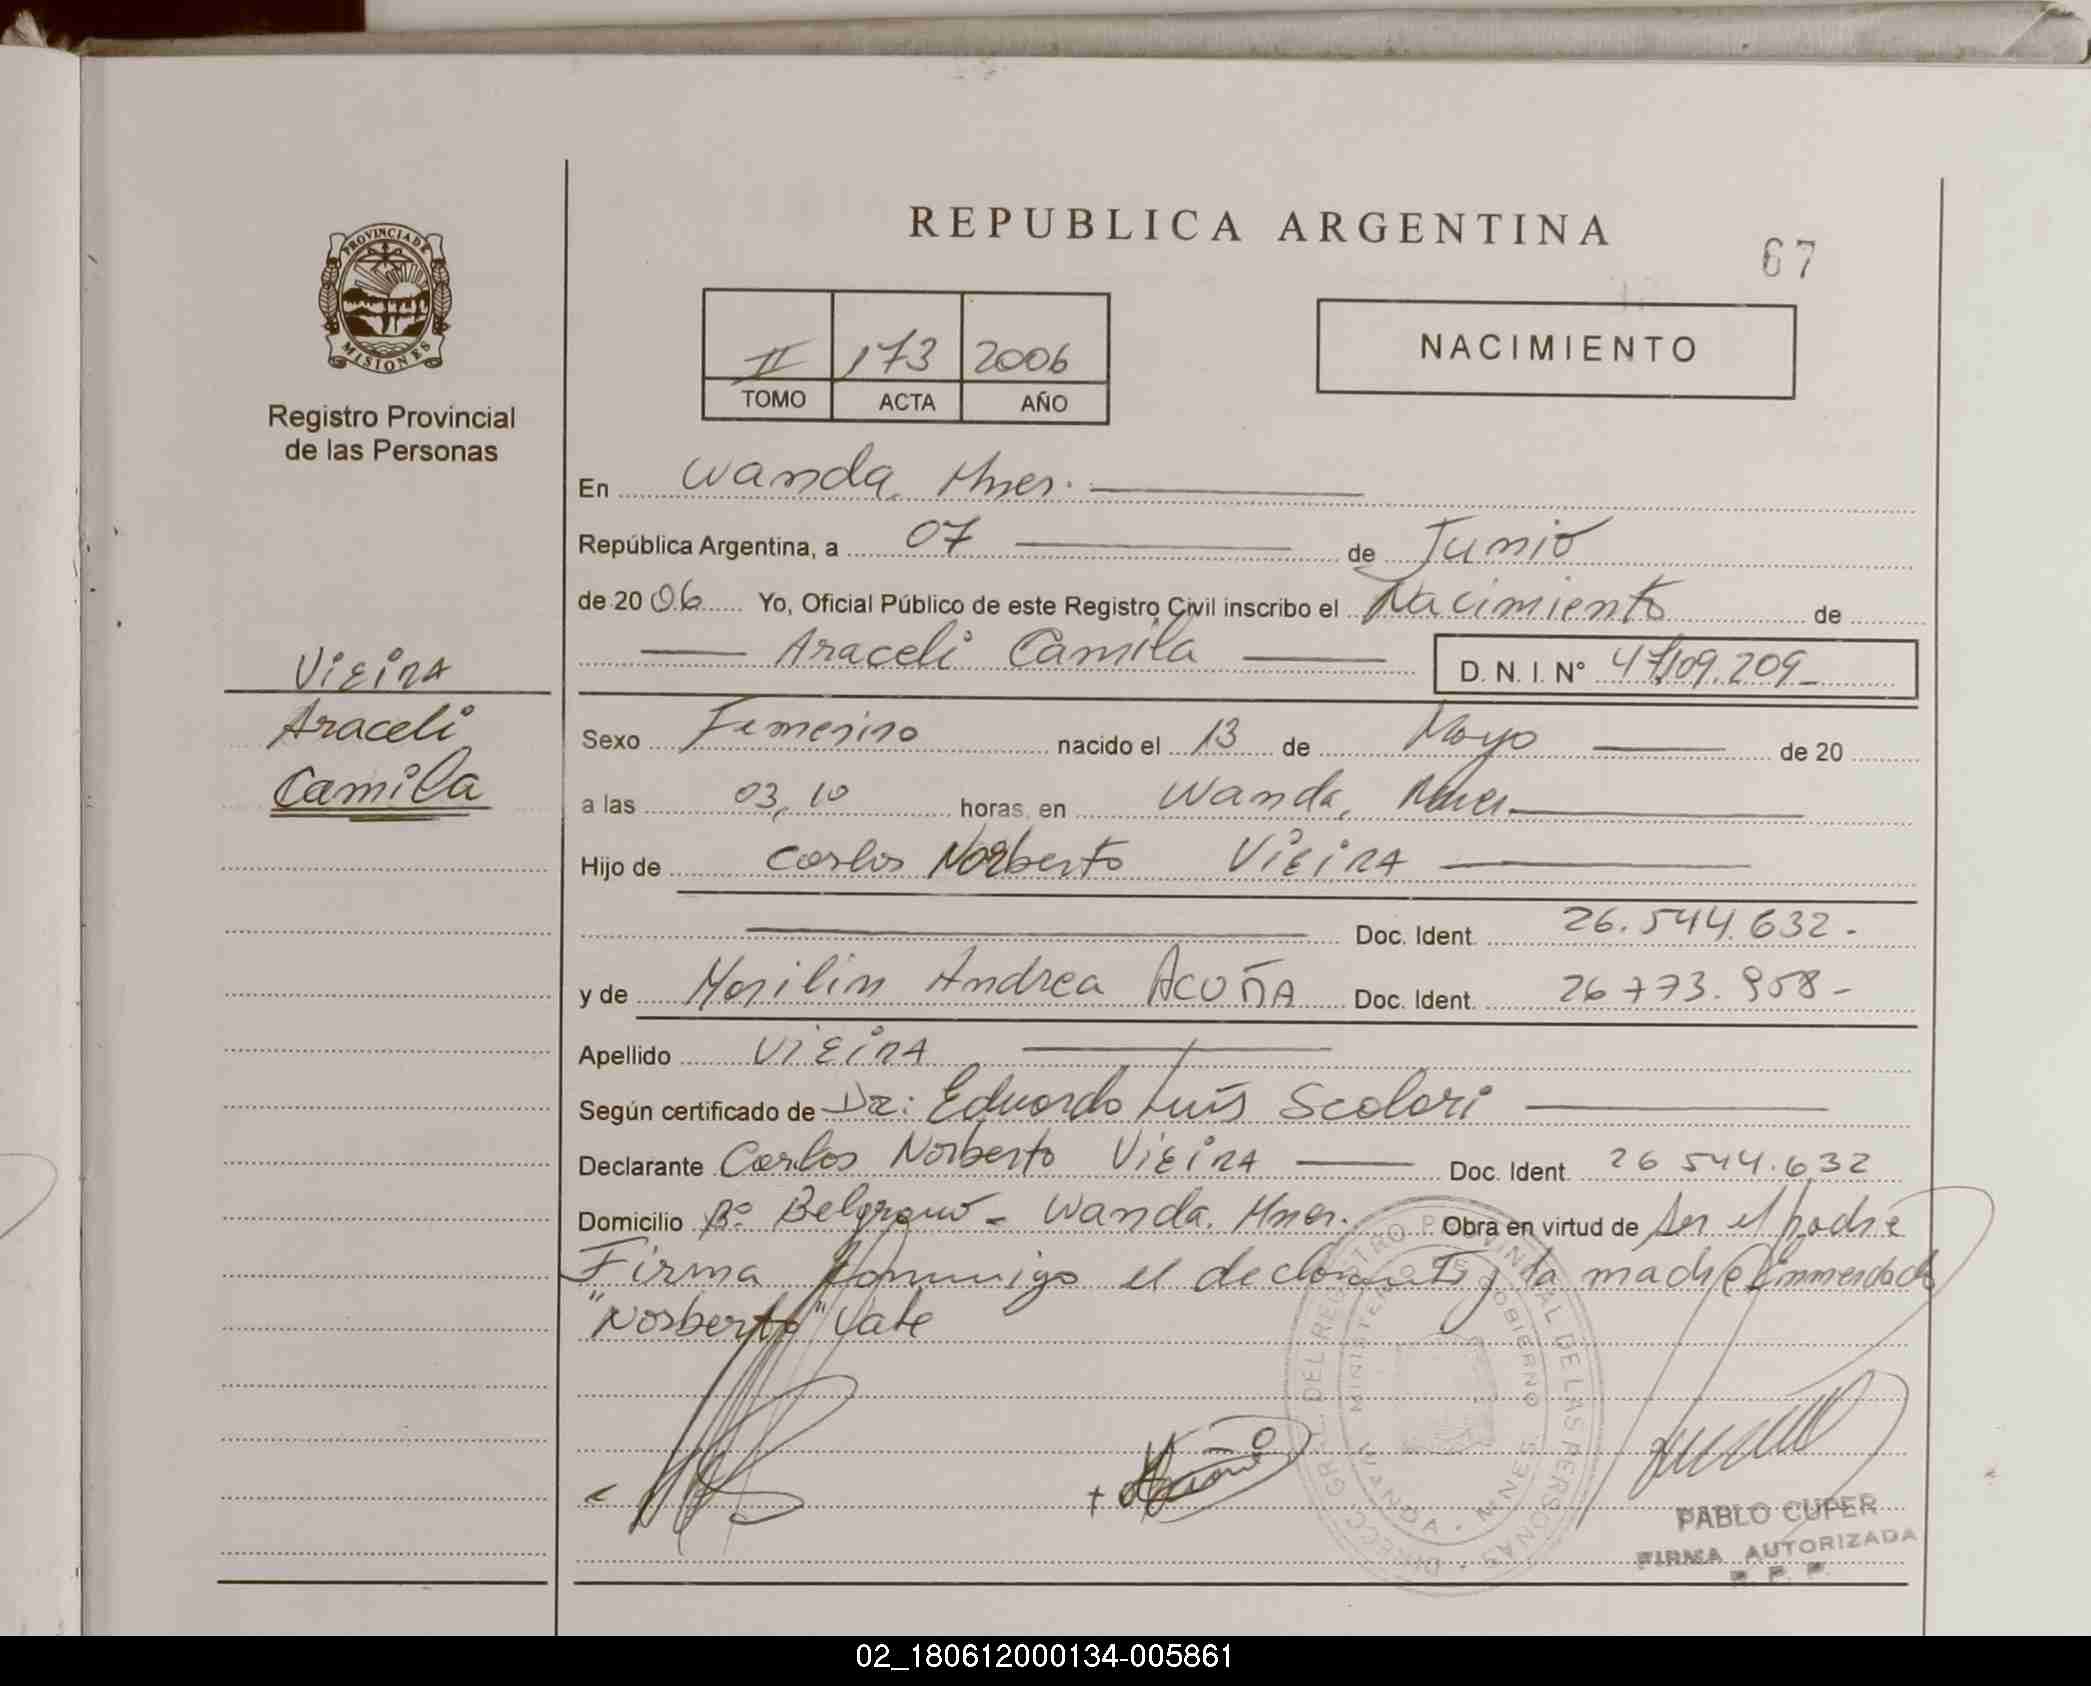 REPUBLICA ARGENTINA
67
PROVINCIA DE
MISIONES
Registro Provincial
de las Personas
II 173 2006
TOMO ACTA AÑO
NACIMIENTO
En Wanda, Mnes.
República Argentina, a 07 de Junio
de 2006 Yo, Oficial Público de este Registro Civil inscribo el Nacimiento de
Araceli Camila D. N. I. N° 47.109.209
Vieira
Araceli
Camila
Sexo Femenino nacido el 13 de Mayo de 20
a las 03,10 horas, en Wanda, Mnes.
Hijo de Carlos Norberto Vieira
Doc. Ident. 26.544.632.-
y de Marilin Andrea Acuña Doc. Ident. 26773.958-
Apellido Vieira
Según certificado de Dr: Eduardo Luis Scolari
Declarante Carlos Norberto Vieira Doc. Ident. 26 544.632
Domicilio B° Belgrano - Wanda. Mnes. Obra en virtud de Ser el padre
Firma conmigo el declarante y la madre Enmendado
"Norberto" Vale
DIRECC. GRAL. DEL REGISTRO PROVINCIAL DE LAS PERSONAS
MINISTERIO DE GOBIERNO
WANDA - MNES.
PABLO CUPER
FIRMA AUTORIZADA
R. P. P.
02_180612000134-005861